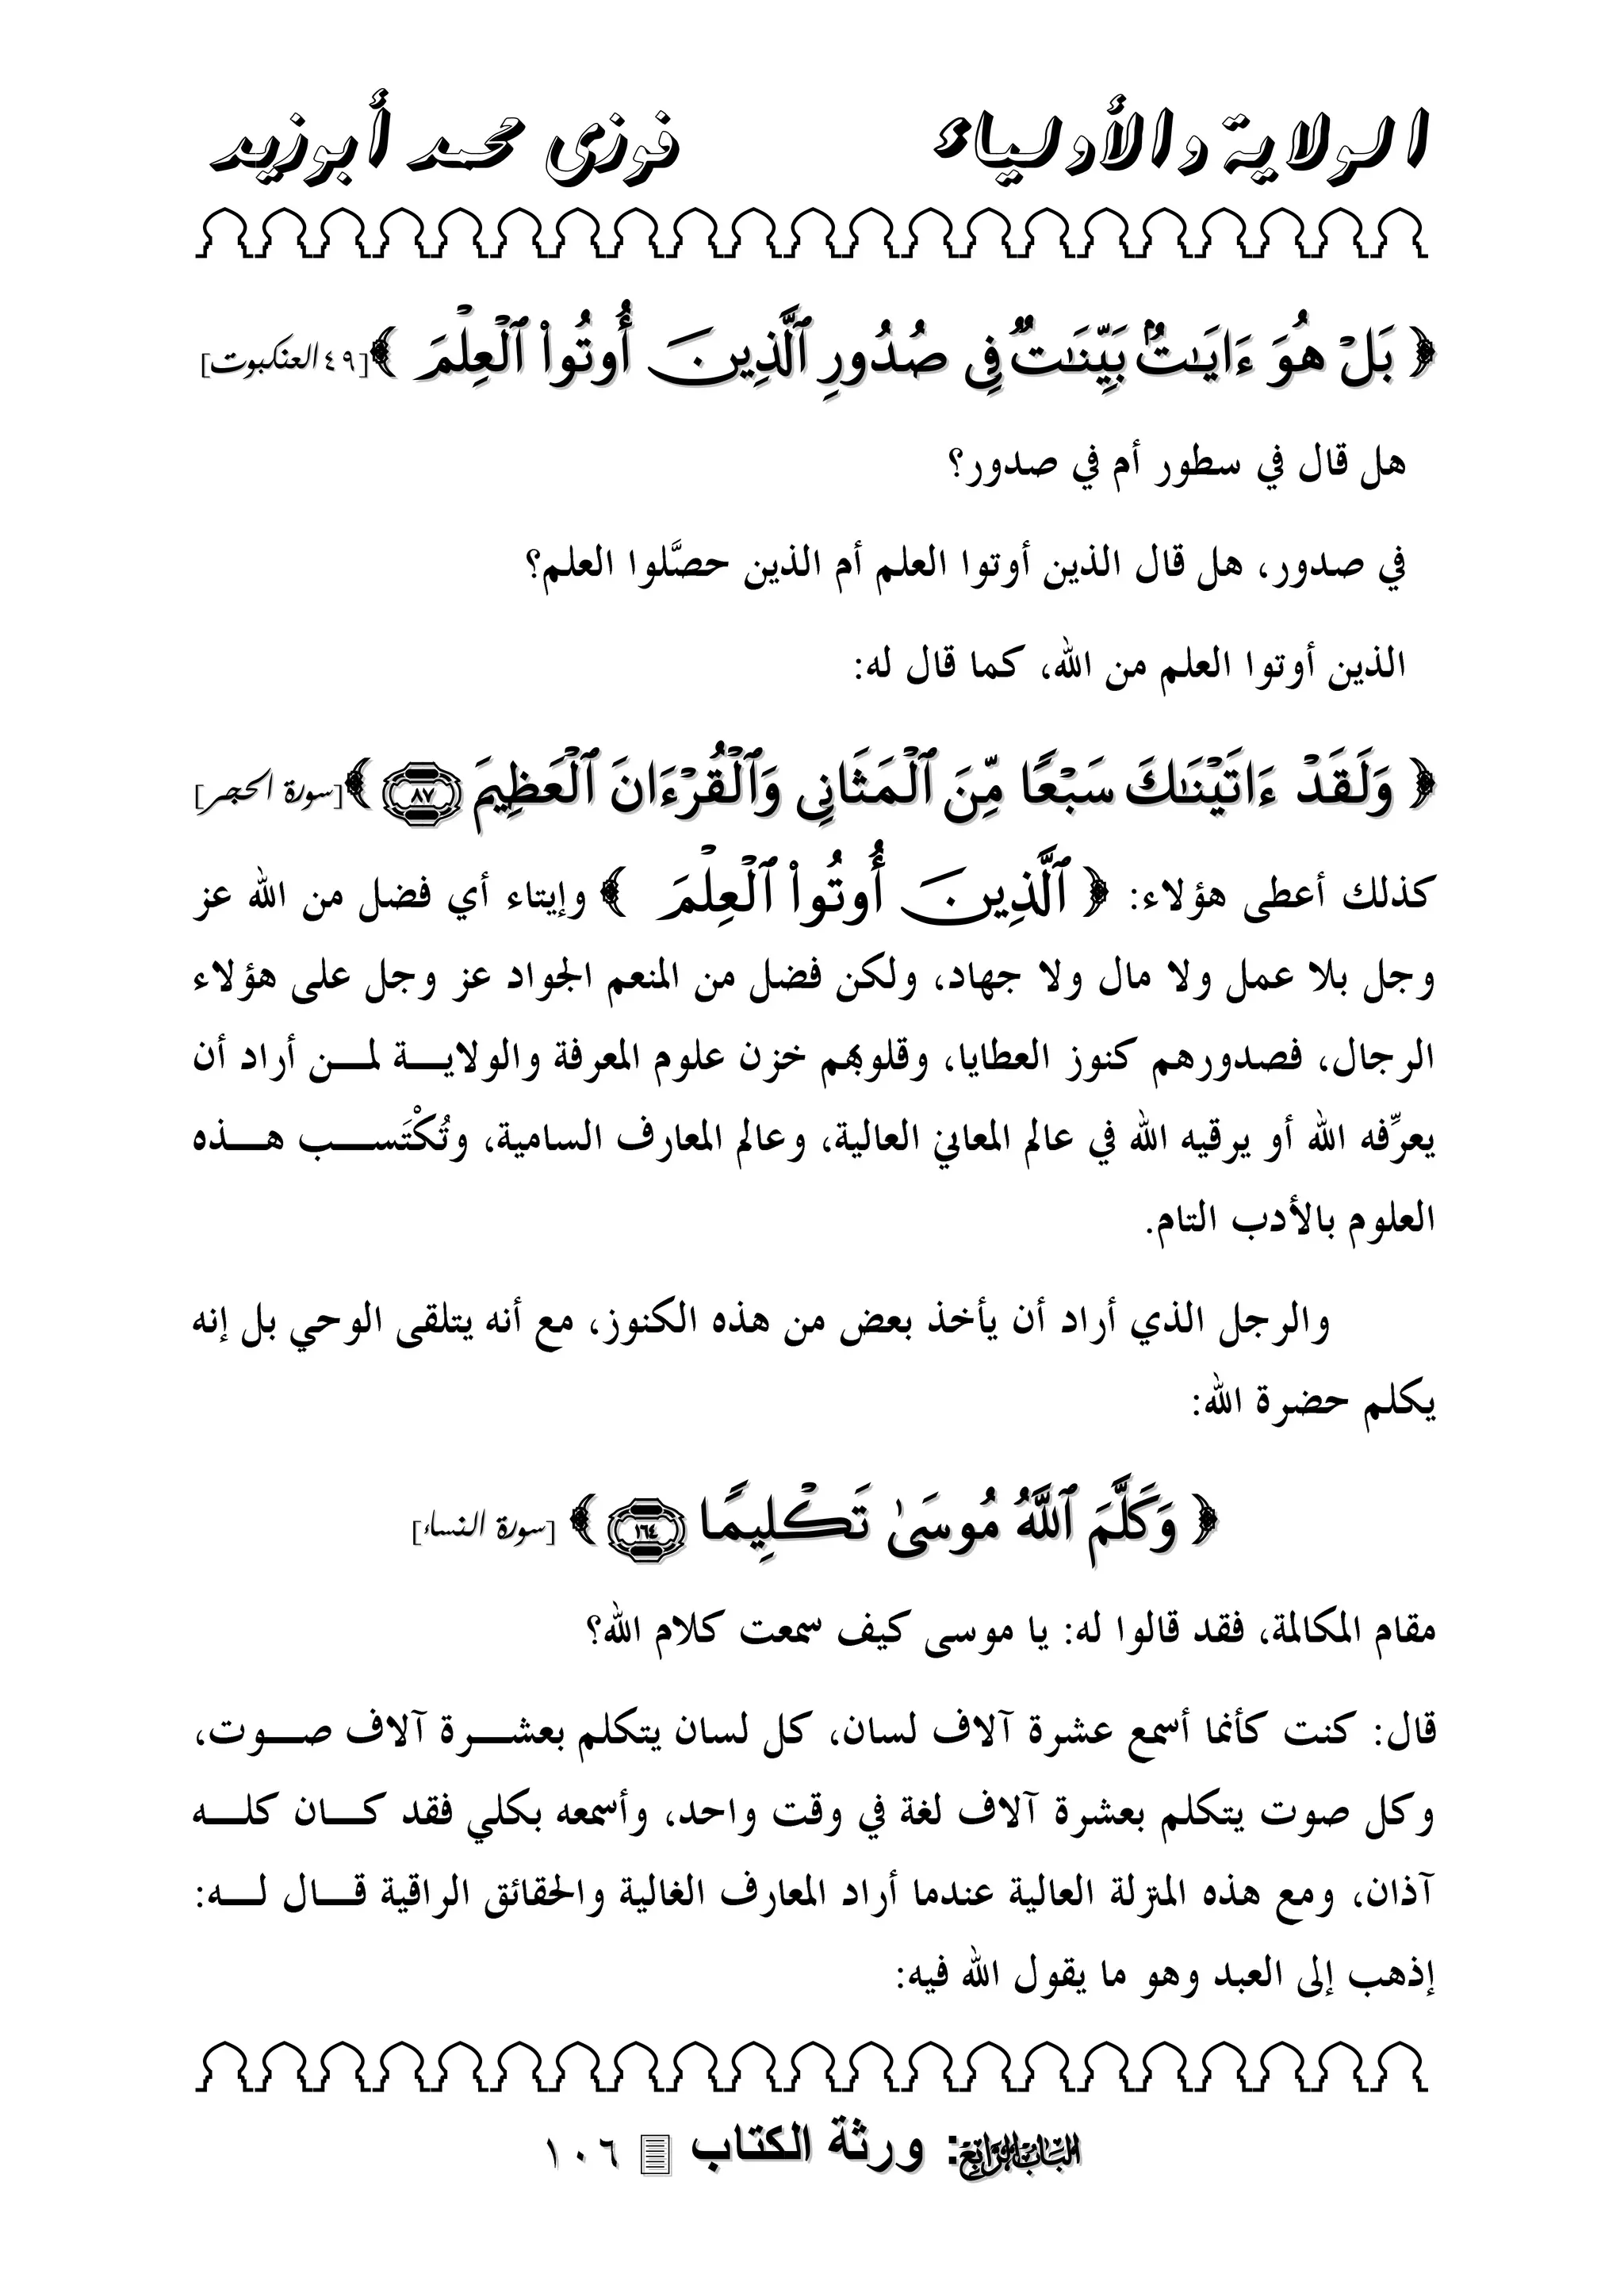 الولاية والأولياء فوزى محمد أبوزيد
﴿ بَلْ هُوَ ءَايَـٰتٌۢ بَيِّنَـٰتٌ فِى صُدُورِ ٱلَّذِينَ أُوتُوا۟ ٱلْعِلْمَ ﴾[٤٩العنكبوت]
هل قال في سطور أم في صدور؟
في صدور، هل قال الذين أوتوا العلم أم الذين حصَّلوا العلم؟
الذين أوتوا العلم من الله، كما قال له:
﴿ وَلَقَدْ ءَاتَيْنَـٰكَ سَبْعًا مِّنَ ٱلْمَثَانِى وَٱلْقُرْءَانَ ٱلْعَظِيمَ ٨٧ ﴾[سورة الحجر]
كذلك أعطى هؤلاء: ﴿ ٱلَّذِينَ أُوتُوا۟ ٱلْعِلْمَ ﴾ وإيتاء أي فضل من الله عز
وجل بلا عمل ولا مال ولا جهاد، ولكن فضل من المنعم الجواد عز وجل على هؤلاء
الرجال، فصدورهم كنوز العطايا، وقلوبهم خزن علوم المعرفة والولايـــة لمـــن أراد أن
يعرِّفه الله أو يرقيه الله في عالم المعاني العالية، وعالم المعارف السامية، وتُكْتَســـب هـــذه
العلوم بالأدب التام.
والرجل الذي أراد أن يأخذ بعض من هذه الكنوز، مع أنه يتلقى الوحي بل إنه
يكلم حضرة الله:
﴿ وَكَلَّمَ ٱللَّهُ مُوسَىٰ تَكْلِيمًا ١٦٤ ﴾ [سورة النساء]
مقام المكالمة، فقد قالوا له: يا موسى كيف سمعت كلام الله؟
قال: كنت كأنما أسمع عشرة آلاف لسان، كل لسان يتكلم بعشـــرة آلاف صـــوت،
وكل صوت يتكلم بعشرة آلاف لغة في وقت واحد، وأسمعه بكلي فقد كـــان كلـــه
آذان، ومع هذه المنزلة العالية عندما أراد المعارف الغالية والحقائق الراقية قـــال لـــه:
إذهب إلى العبد وهو ما يقول الله فيه:
الباب الرابع: ورثة الكتاب ١٠٦